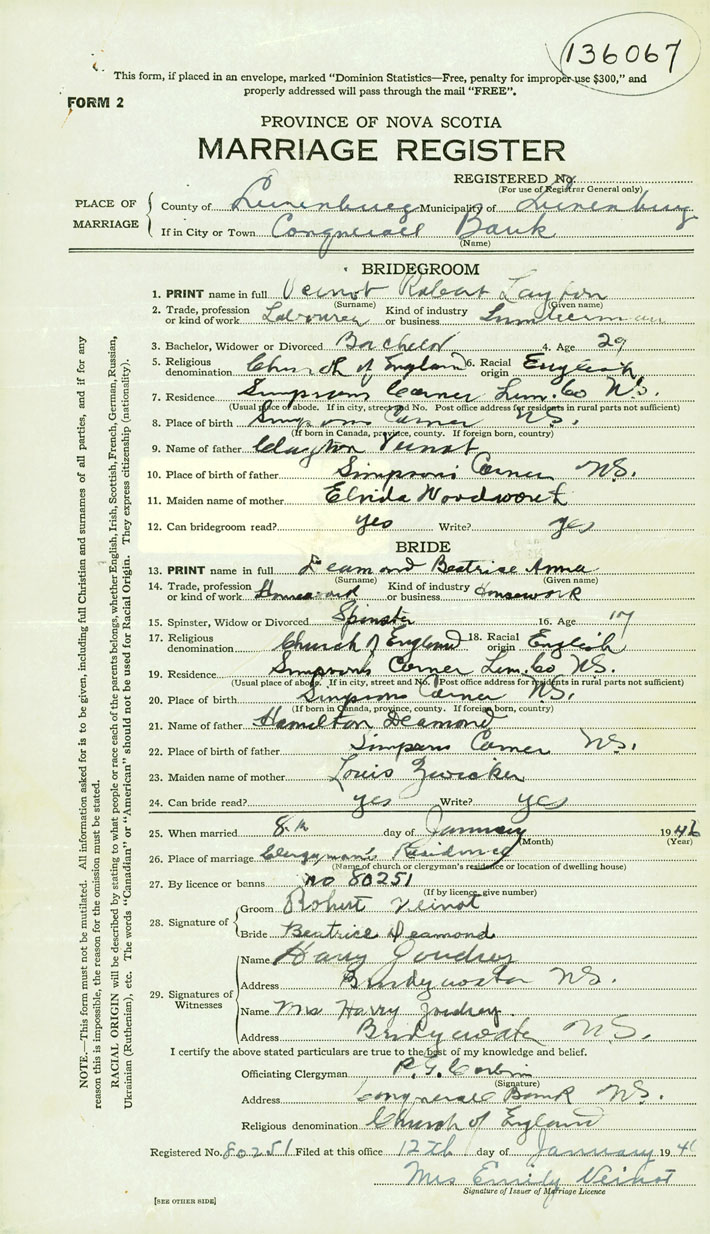 136067
This form, if placed in an envelope, marked "Dominion Statistics—Free, penalty for improper use $300," and
properly addressed will pass through the mail "FREE".
FORM 2
PROVINCE OF NOVA SCOTIA
MARRIAGE REGISTER
REGISTERED No.
(For use of Registrar General only)
PLACE OF MARRIAGE
County of Lunenburg Municipality of Lunenburg
If in City or Town Conquerall Bank
(Name)
BRIDEGROOM
1. PRINT name in full Veinot Robert Layton
(Surname) (Given name)
2. Trade, profession or kind of work Labourer Kind of industry or business Lumberman
3. Bachelor, Widower or Divorced Bachelor 4. Age 29
5. Religious denomination Church of England 6. Racial origin English
7. Residence Simpsons Corner Lun. Co N.S.
(Usual place of abode. If in city, street and No. Post office address for residents in rural parts not sufficient)
8. Place of birth Simpsons Corner N.S.
(If born in Canada, province, county. If foreign born, country)
9. Name of father Clayton Veinot
10. Place of birth of father Simpsons Corner N.S.
11. Maiden name of mother Elvida Woodworth
12. Can bridegroom read? yes Write? yes
BRIDE
13. PRINT name in full Deamond Beatrice Anna
(Surname) (Given name)
14. Trade, profession or kind of work Housework Kind of industry or business Housework
15. Spinster, Widow or Divorced Spinster 16. Age 17
17. Religious denomination Church of England 18. Racial origin English
19. Residence Simpsons Corner Lun. Co N.S.
(Usual place of abode. If in city, street and No. Post office address for residents in rural parts not sufficient)
20. Place of birth Simpsons Corner N.S.
(If born in Canada, province, county. If foreign born, country)
21. Name of father Hamilton Deamond
22. Place of birth of father Simpsons Corner N.S.
23. Maiden name of mother Louis Zwicker
24. Can bride read? yes Write? yes
25. When married 8th day of January 1946
(Month) (Year)
26. Place of marriage Clergyman's Residence
(Name of church or clergyman's residence or location of dwelling house)
27. By licence or banns no 80251
(If by licence, give number)
28. Signature of
Groom Robert Veinot
Bride Beatrice Deamond
29. Signatures of Witnesses
Name Harry Joudrey
Address Bridgewater N.S.
Name Mrs Harry Joudrey
Address Bridgewater N.S.
I certify the above stated particulars are true to the best of my knowledge and belief.
Officiating Clergyman
(Signature)
Address Conquerall Bank N.S.
Religious denomination Church of England
Registered No. 80251 Filed at this office 12th day of January 194
Mrs Emily Veinot
Signature of Issuer of Marriage Licence
[SEE OTHER SIDE]
NOTE.—This form must not be mutilated. All information asked for is to be given, including full Christian and surnames of all parties, and if for any
reason this is impossible, the reason for the omission must be stated.
RACIAL ORIGIN will be described by stating to what people or race each of the parents belongs, whether English, Irish, Scottish, French, German, Russian,
Ukrainian (Ruthenian), etc. The words "Canadian" or "American" should not be used for Racial Origin. They express citizenship (nationality).